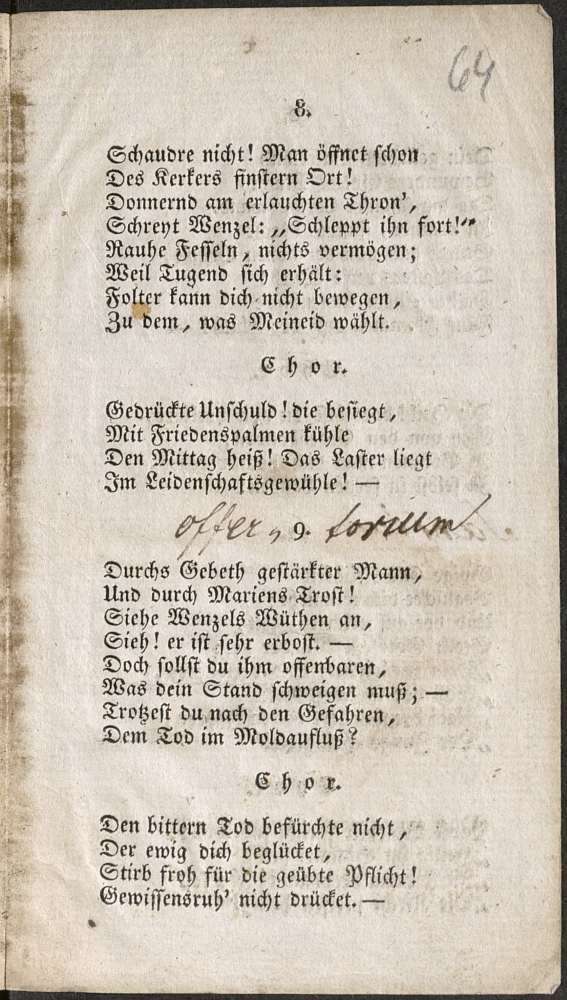 64
8.
Schaudre nicht! Man öffnet schon
Des Kerkers finstern Ort!
Donnernd am erlauchten Thron',
Schreyt Wenzel: „Schleppt ihn fort!“
Rauhe Fesseln, nichts vermögen;
Weil Tugend sich erhält:
Folter kann dich nicht bewegen,
Zu dem, was Meineid wählt.
Chor.
Gedrückte Unschuld! die besiegt,
Mit Friedenspalmen kühle
Den Mittag heiß! Das Laster liegt
Im Leidenschaftsgewühle! —
offer „ 9. torium
Durchs Gebeth gestärkter Mann,
Und durch Mariens Trost!
Siehe Wenzels Wüthen an,
Sieh! er ist sehr erbost. —
Doch sollst du ihm offenbaren,
Was dein Stand schweigen muß; —
Trotzest du nach den Gefahren,
Dem Tod im Moldaufluß?
Chor.
Den bittern Tod befürchte nicht,
Der ewig dich beglücket,
Stirb froh für die geübte Pflicht!
Gewissensruh' nicht drücket. —